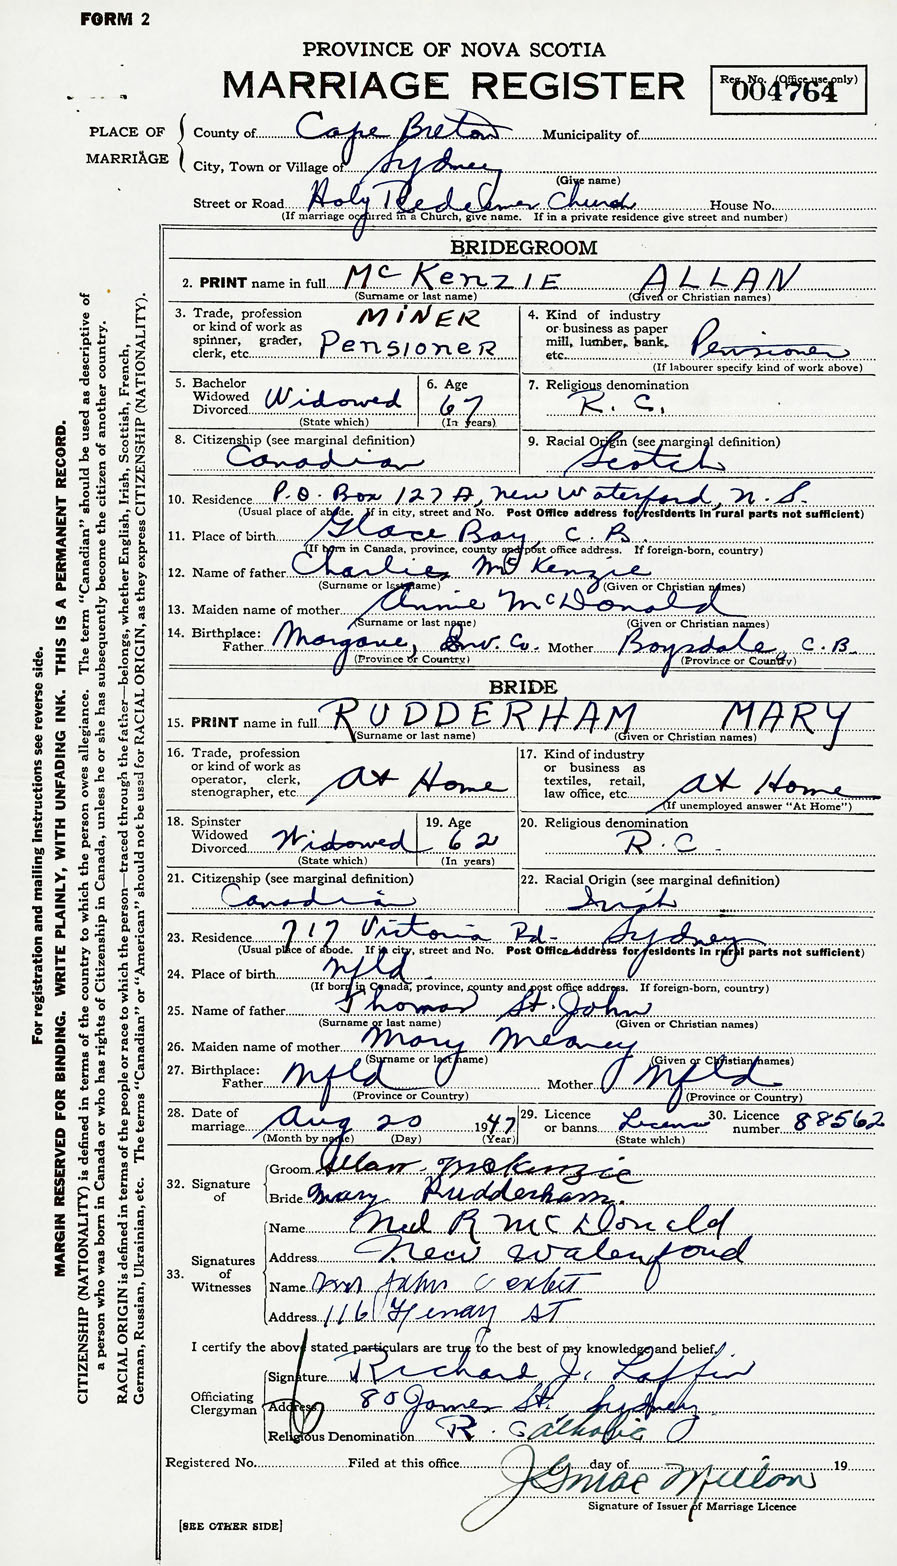 FORM 2
PROVINCE OF NOVA SCOTIA
MARRIAGE REGISTER
Reg. No. (Office use only)
004764
PLACE OF MARRIAGE
County of Cape Breton Municipality of
City, Town or Village of Sydney
(Give name)
Street or Road Holy Redeemer Church House No.
(If marriage occurred in a Church, give name. If in a private residence give street and number)
BRIDEGROOM
2. PRINT name in full McKENZIE ALLAN
(Surname or last name) (Given or Christian names)
3. Trade, profession or kind of work as spinner, grader, clerk, etc. MINER PENSIONER
4. Kind of industry or business as paper mill, lumber, bank, etc. Pensioner
(If labourer specify kind of work above)
5. Bachelor Widowed Divorced Widowed
(State which)
6. Age 67
(In years)
7. Religious denomination R. C.
8. Citizenship (see marginal definition) Canadian
9. Racial Origin (see marginal definition) Scotch
10. Residence P.O. Box 127A, New Waterford, N. S.
(Usual place of abode. If in city, street and No. Post Office address for residents in rural parts not sufficient)
11. Place of birth Glace Bay, C. B.
(If born in Canada, province, county and post office address. If foreign-born, country)
12. Name of father Charlie McKenzie
(Surname or last name) (Given or Christian names)
13. Maiden name of mother Annie McDonald
(Surname or last name) (Given or Christian names)
14. Birthplace: Father Margaree, Inv. Co. Mother Boysdale, C. B.
(Province or Country) (Province or Country)
BRIDE
15. PRINT name in full RUDDERHAM MARY
(Surname or last name) (Given or Christian names)
16. Trade, profession or kind of work as operator, clerk, stenographer, etc. At Home
17. Kind of industry or business as textiles, retail, law office, etc. At Home
(If unemployed answer "At Home")
18. Spinster Widowed Divorced Widowed
(State which)
19. Age 62
(In years)
20. Religious denomination R. C.
21. Citizenship (see marginal definition) Canadian
22. Racial Origin (see marginal definition) Irish
23. Residence 717 Victoria Rd. Sydney
(Usual place of abode. If in city, street and No. Post Office Address for residents in rural parts not sufficient)
24. Place of birth Nfld
(If born in Canada, province, county and post office address. If foreign-born, country)
25. Name of father Thomas St. John
(Surname or last name) (Given or Christian names)
26. Maiden name of mother Mary Meaney
(Surname or last name) (Given or Christian names)
27. Birthplace: Father Nfld Mother Nfld
(Province or Country) (Province or Country)
28. Date of marriage Aug 20 1947
(Month by name) (Day) (Year)
29. Licence or banns License
(State which)
30. Licence number 88562
32. Signature of
Groom Allan McKenzie
Bride Mary Rudderham
33. Signatures of Witnesses
Name Neil R McDonald
Address New Waterford
Name Mrs John
Address 116 Henry St
I certify the above stated particulars are true to the best of my knowledge and belief.
Officiating Clergyman
Signature Richard J. Laffin
Address 80 James St. Sydney
Religious Denomination R. Catholic
Registered No. Filed at this office day of 19
Signature of Issuer of Marriage Licence
[SEE OTHER SIDE]
For registration and mailing instructions see reverse side.
MARGIN RESERVED FOR BINDING. WRITE PLAINLY, WITH UNFADING INK. THIS IS A PERMANENT RECORD.
CITIZENSHIP (NATIONALITY) is defined in terms of the country to which the person owes allegiance. The term "Canadian" should be used as descriptive of
a person who was born in Canada or who has rights of Citizenship in Canada, unless he or she has subsequently become the citizen of another country.
RACIAL ORIGIN is defined in terms of the people or race to which the person—traced through the father—belongs, whether English, Irish, Scottish, French,
German, Russian, Ukrainian, etc. The terms "Canadian" or "American" should not be used for RACIAL ORIGIN, as they express CITIZENSHIP (NATIONALITY).